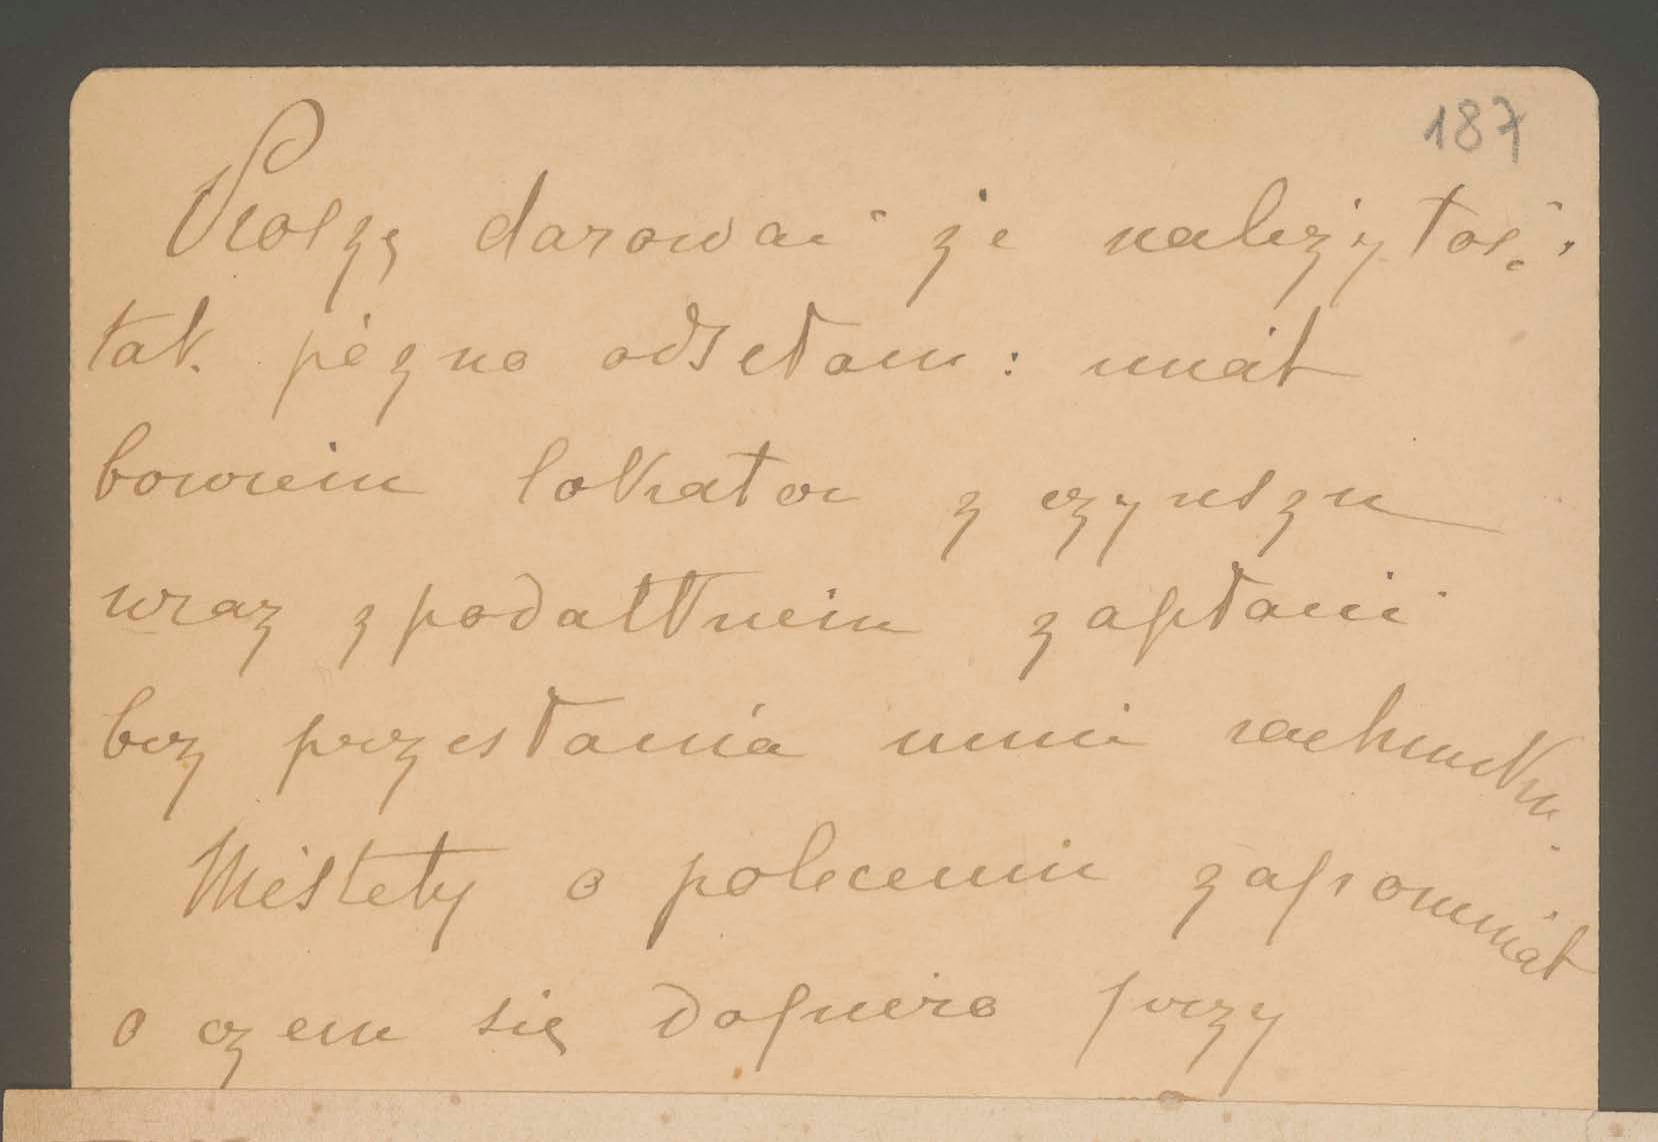 187
Proszę darować że należytość
tak późno odsełam: miał
bowiem lokator z czynszu
wraz z podatkiem zapłacić
bez przesłania mnie rachunku.
Niestety o poleceniu zapomniał
o czem się dopiero przy